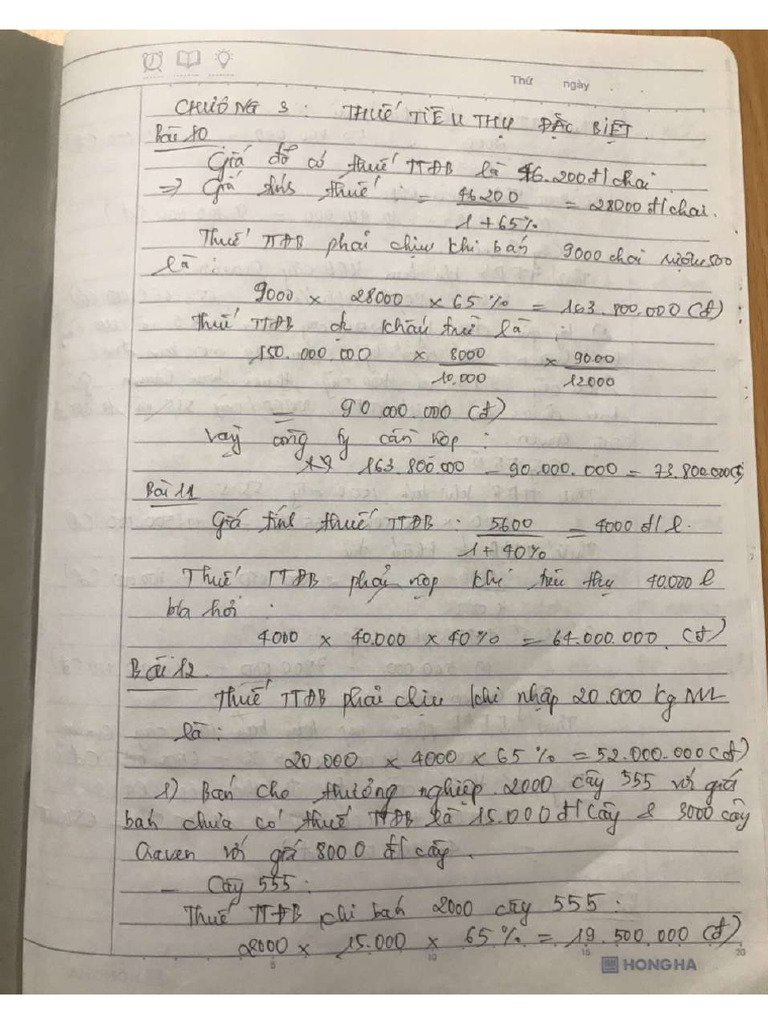 Thứ ngày
CHƯƠNG 3 : THUẾ TIÊU THỤ ĐẶC BIỆT.
Bài 10
Giá đã có thuế TTĐB là 46.200đ/chai
=> Giá tính thuế = 46200 / 1+65% = 28000 đ/chai.
Thuế TTĐB phải chịu khi bán 9000 chai rượu 500
là
9000 x 28000 x 65% = 163.800.000 (đ)
Thuế TTĐB đc khấu trừ là,
150.000.000 x 8000 / 10.000 x 9000 / 12000
= 90.000.000 (đ)
Vậy công ty cần nộp :
163.800.000 - 90.000.000 = 73.800.000(đ)
Bài 11
Giá tính thuế TTĐB : 5600 / 1+40% = 4000 đ/l.
Thuế TTĐB phải nộp khi tiêu thụ 40.000 l
bia hơi :
4000 x 40.000 x 40% = 64.000.000. (đ)
Bài 12.
Thuế TTĐB phải chịu khi nhập 20.000 kg NVL
là :
20.000 x 4000 x 65% = 52.000.000(đ)
1) Bán cho thương nghiệp 2000 cây 555 với giá
bán chưa có thuế TTĐB là 15.000đ/cây & 3000 cây
Aaven với giá 8000 đ/cây.
- Cây 555 :
Thuế TTĐB khi bán 2000 cây 555 :
2000 x 15.000 x 65% = 19.500.000 (đ)
5 10 15 20
HONG HA